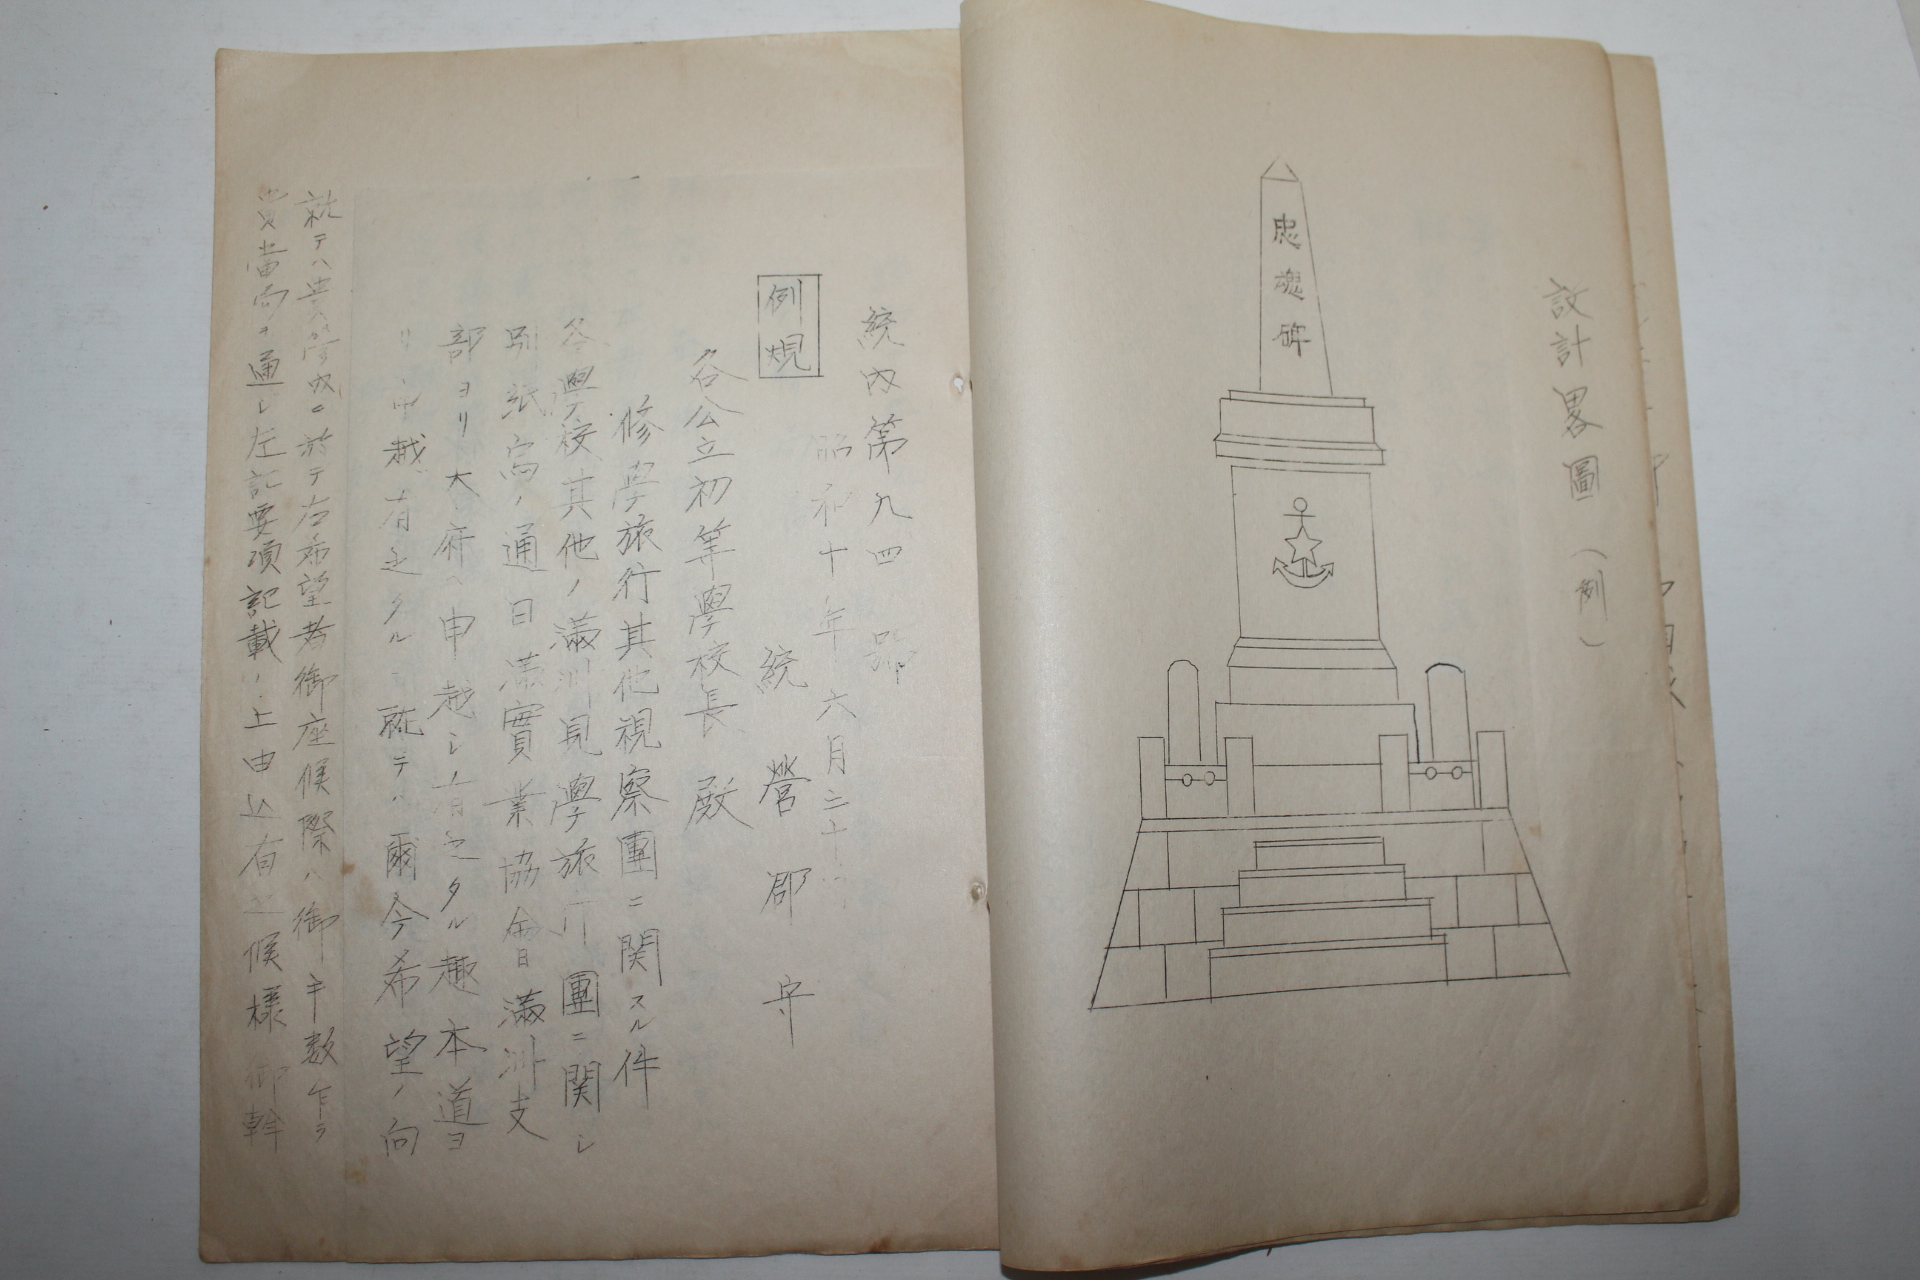 設計畧圖(例)
忠魂碑
統內第九四號
昭和十年六月二十
例規
統營郡守
各公立初等學校長殿
修學旅行其他視察團ニ関スル件
各學校其他ノ滿洲見學旅行團ニ関シ
別紙寫ノ通日滿實業協會滿洲支
部ヨリ本府ヘ申越シノ有之タル趣本道ヨ
リ申越有之タルニ就テハ爾今希望ノ向
就テハ貴管內ニ於テ右希望者御座候際ハ御手数乍ラ
當局ヲ通シ左記要項記載ノ上申込有之候樣御幹